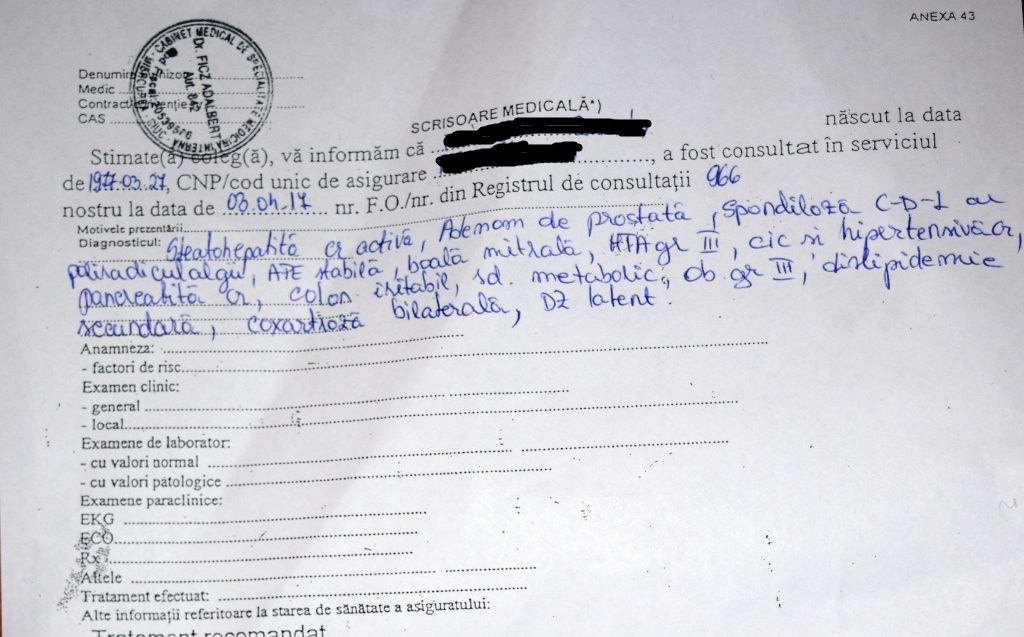 ANEXA 43
CABINET MEDICAL DE SPECIALITATE MEDICINĂ INTERNĂ
Dr. FICZ ADALBERT
Aut. 842
MIERCUREA CIUC
Denumire
Medic
Contract
CAS
SCRISOARE MEDICALĂ*)
Stimate(ă) coleg(ă), vă informăm că născut la data
de 1977.03.27, CNP/cod unic de asigurare , a fost consultat în serviciul
nostru la data de 03.04.17 nr. F.O./nr. din Registrul de consultații 966
Motivele prezentării
Diagnosticul: Steatohepatită cr activă, Adenom de prostată, spondiloză C-D-L cu
poliradiculalgii, APE stabilă, boală mitrală, HTA gr III, cic si hipertensivă cr,
pancreatită cr, colon iritabil, sd. metabolic, Ob gr III, dislipidemie
secundară, coxartroză bilaterală, DZ latent.
Anamneza:
- factori de risc
Examen clinic:
- general
- local
Examene de laborator:
- cu valori normal
- cu valori patologice
Examene paraclinice:
EKG
ECO
Rx
Altele
Tratament efectuat:
Alte informații referitoare la starea de sănătate a asiguratului:
Tratament recomandat